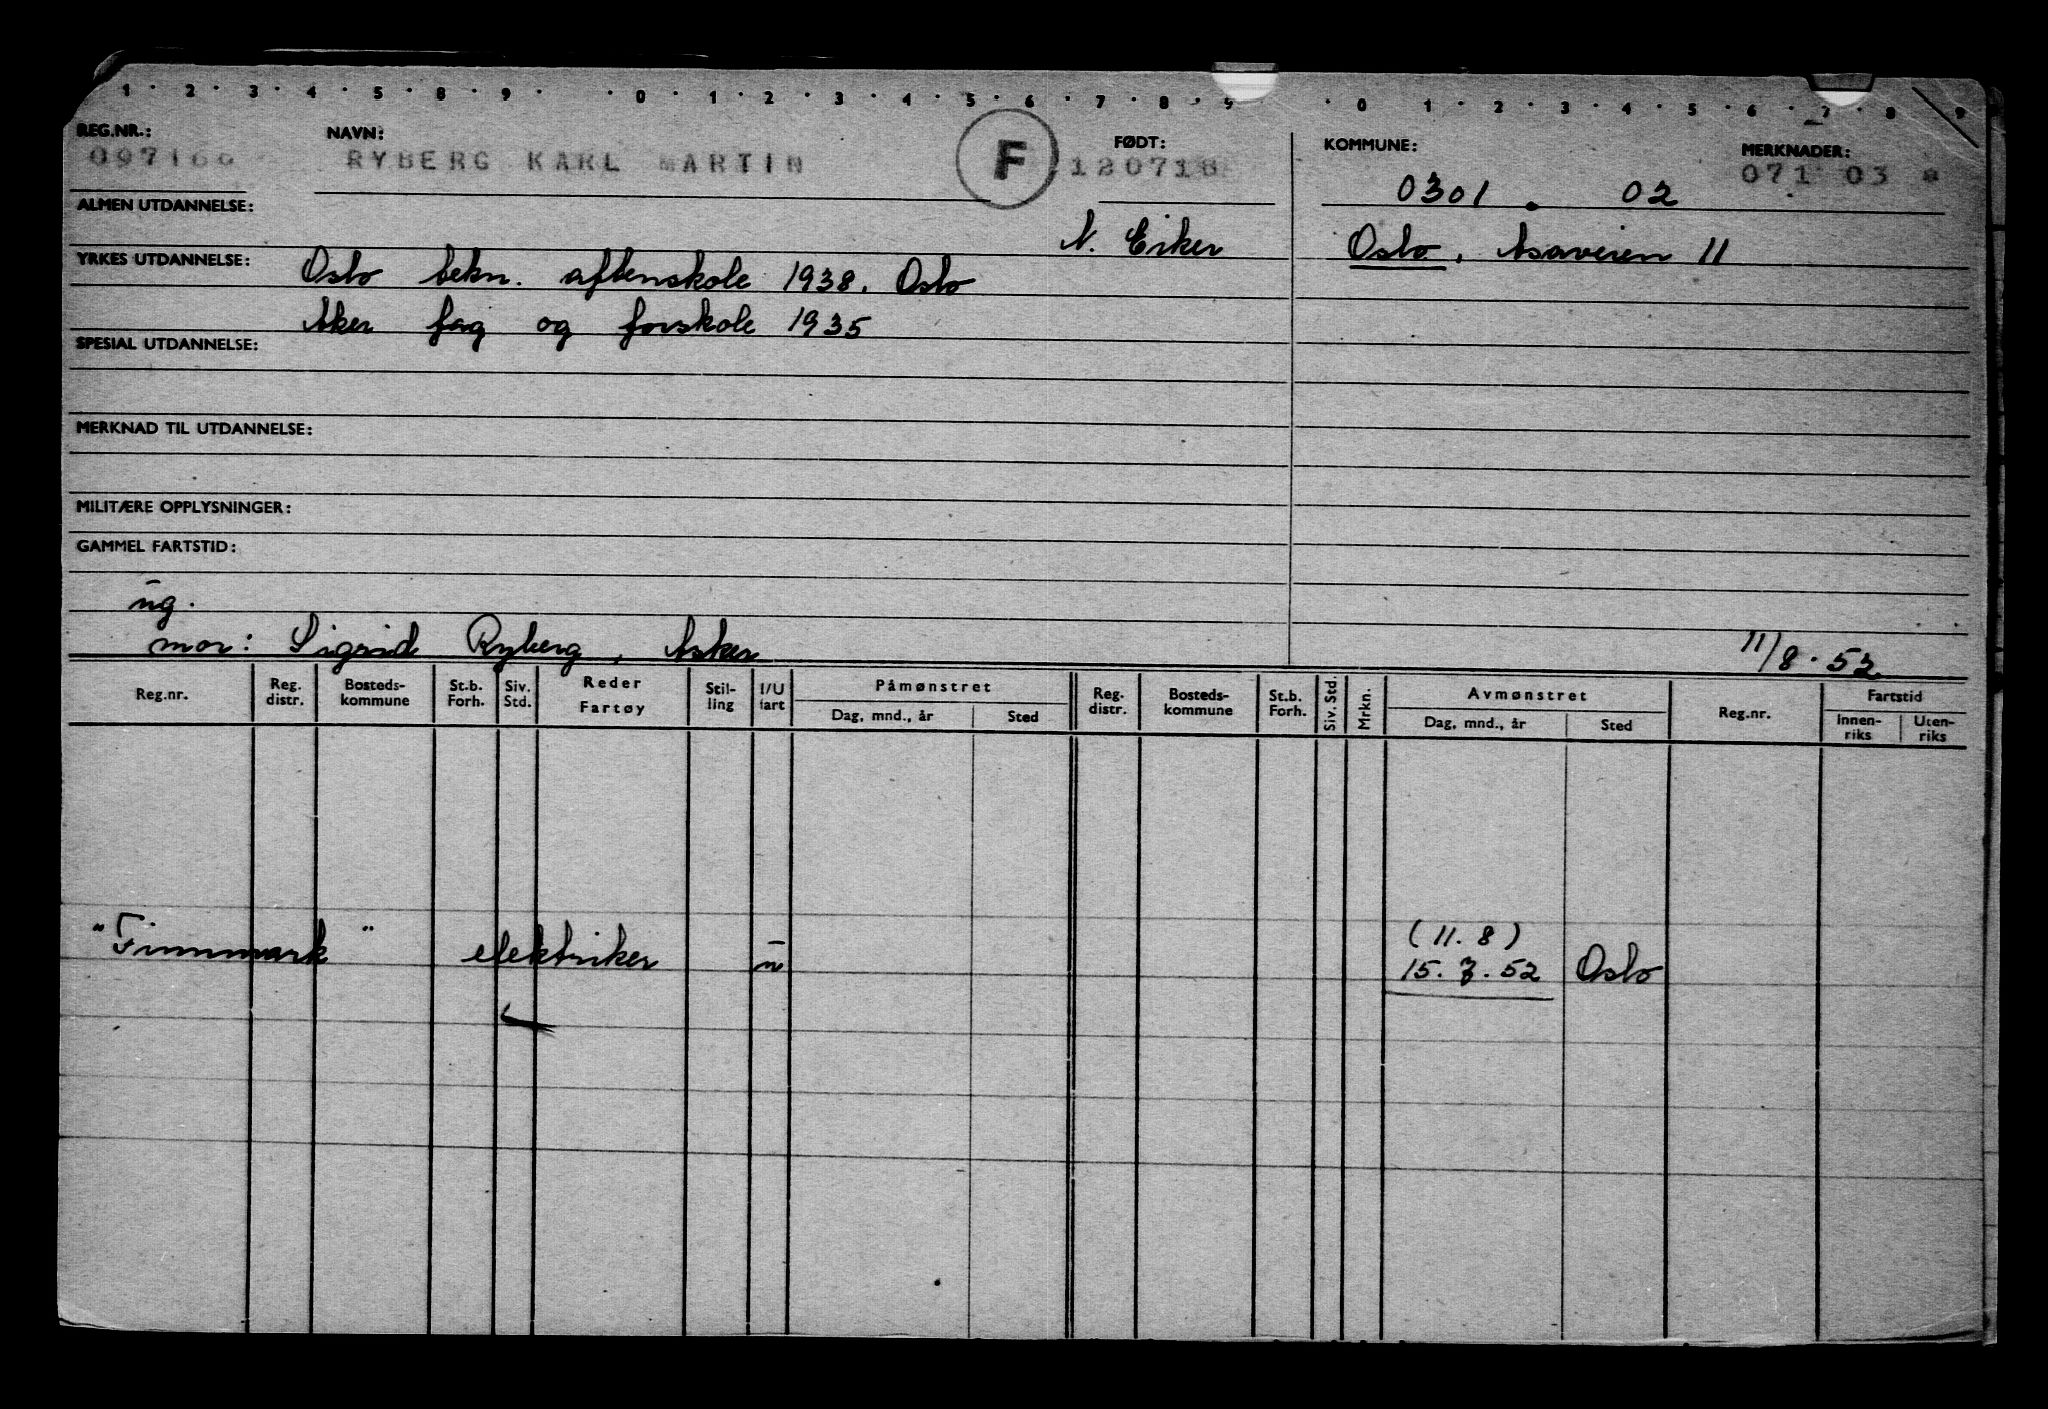 1 · 2 · 3 · 4 · 5 · 8 · 9 · · 0 · 1 · 2 · 3 · 4 · 5 · 6 · 7 · 8 · 9 · 0 · 1 · 2 · 3 · 4 · 5 · 6 · 7 · 8 · 9
REG.NR.: NAVN: F FØDT: KOMMUNE: MERKNADER:
RYBERG KARL MARTIN 120718 0301 . 02 071 03
ALMEN UTDANNELSE:
N. Eiker Oslo, Asaveien 11
YRKES UTDANNELSE: Oslo tekn. aftenskole 1938. Oslo
Aker fag og forskole 1935
SPESIAL UTDANNELSE:
MERKNAD TIL UTDANNELSE:
MILITÆRE OPPLYSNINGER:
GAMMEL FARTSTID:
ug.
mor: Sigrid Ryberg, Asker 11/8.52
Reg.nr. Reg. distr. Bosteds-kommune St.b. Forh. Siv. Std. Reder Fartøy Stil-ling I/U fart Påmønstret Dag, mnd., år Sted Reg. distr. Bosteds-kommune St.b. Forh. Siv. Std. Mrkn. Avmønstret Dag, mnd., år Sted Reg.nr. Fartstid Innen-riks Uten-riks
(11.8)
"Finnmark" elektriker u 15.7.52 Oslo